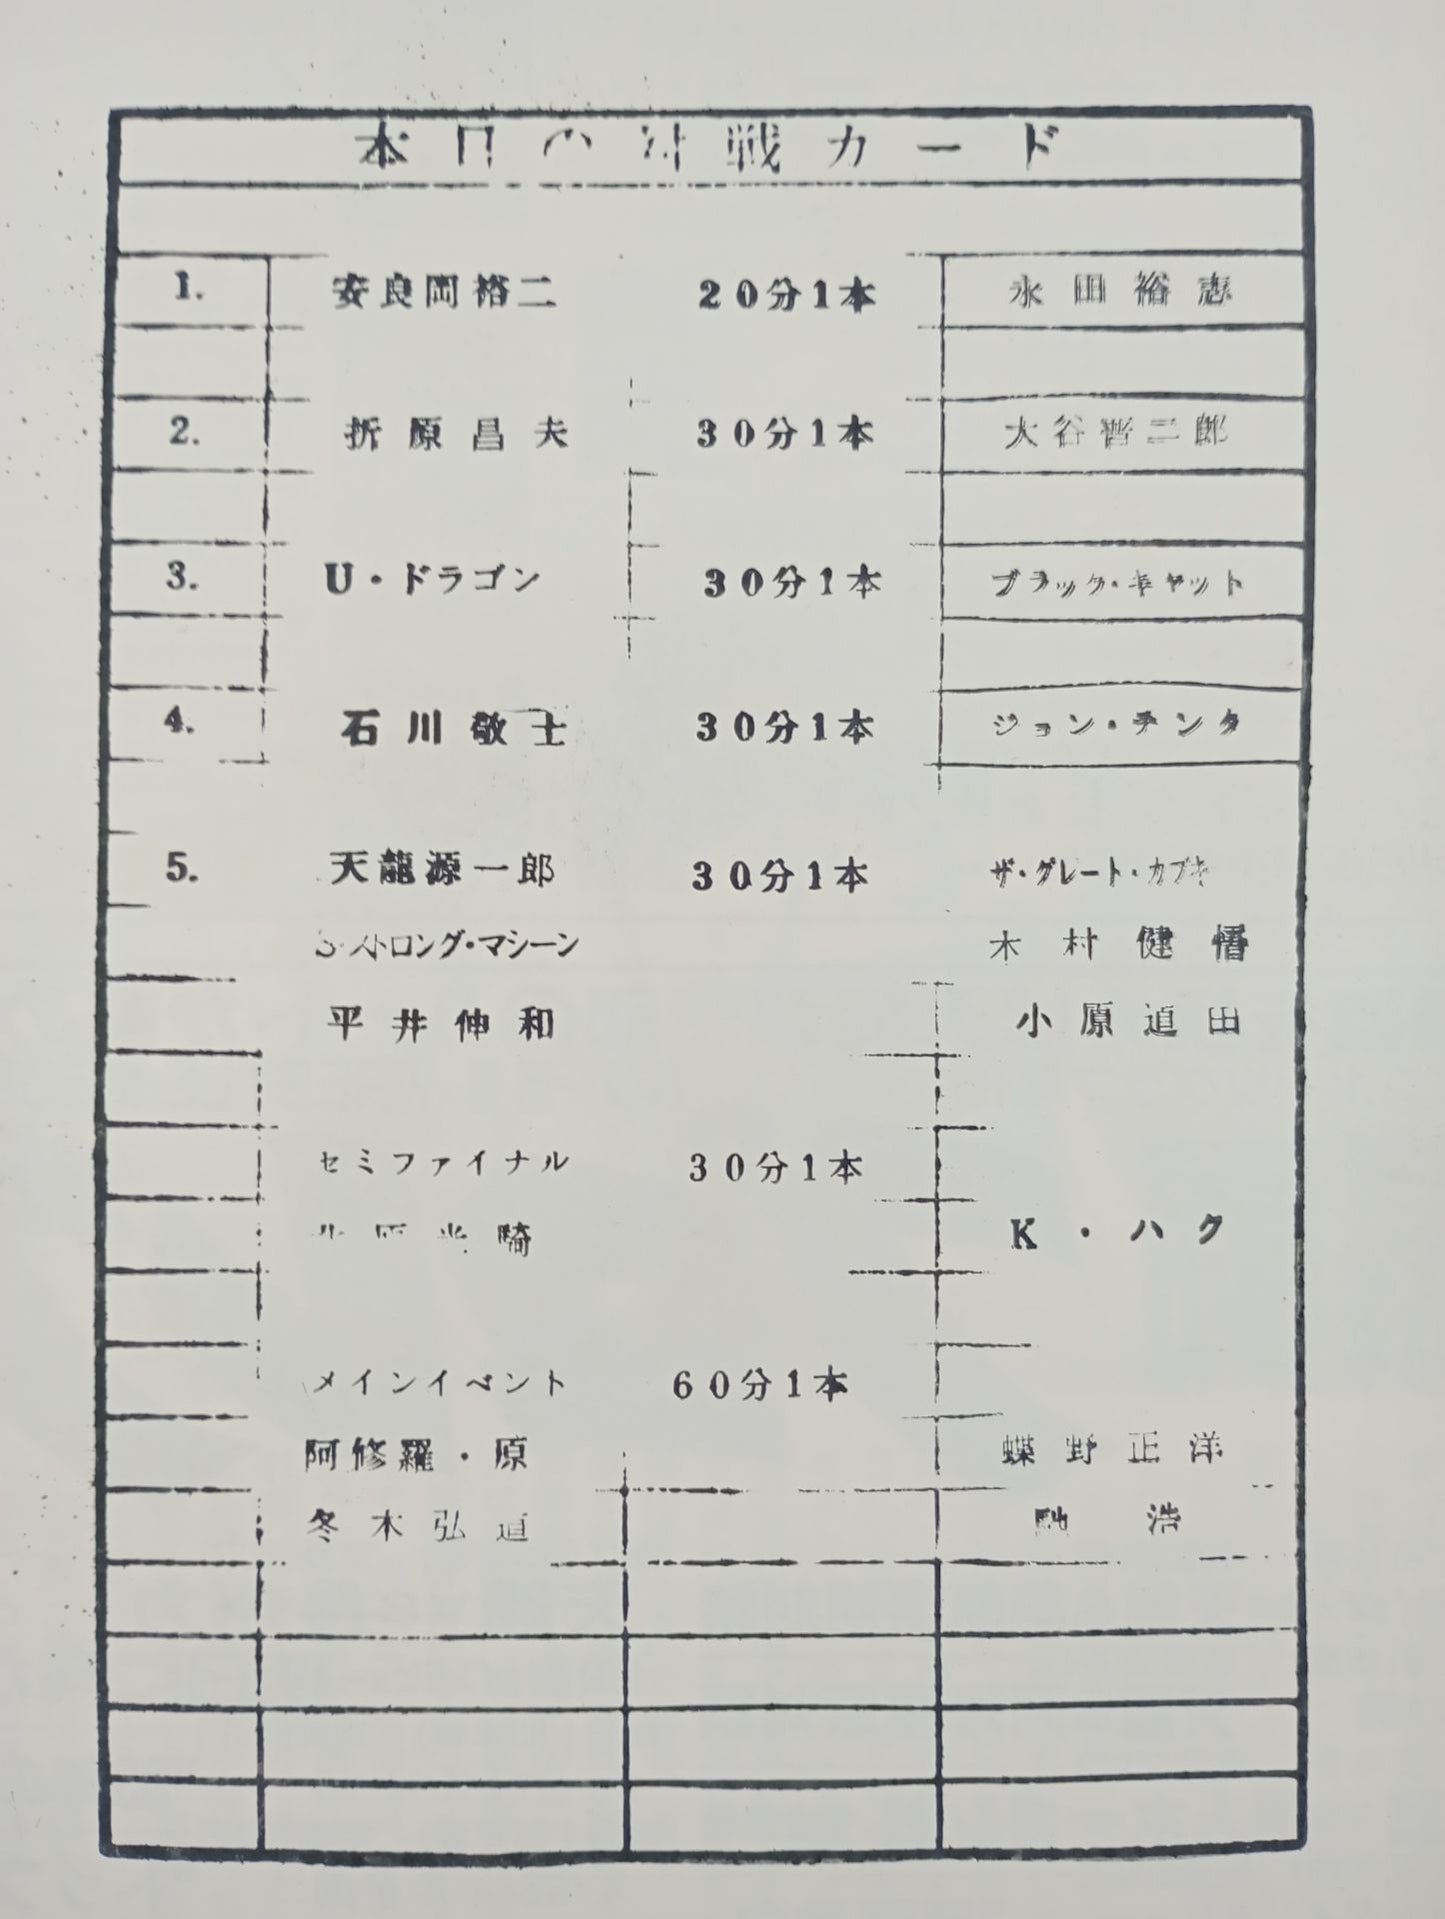 本日の対戦カード
1. 安良岡裕二 20分1本 永田裕志
2. 折原昌夫 30分1本 大谷晋二郎
3. U・ドラゴン 30分1本 ブラック・キャット
4. 石川敬士 30分1本 ジョン・テンタ
5. 天龍源一郎 30分1本 ザ・グレート・カブキ
S・ストロング・マシーン 木村健悟
平井伸和 小原道由
セミファイナル 30分1本
北原光騎 K・ハク
メインイベント 60分1本
阿修羅・原 蝶野正洋
冬木弘道 馳 浩